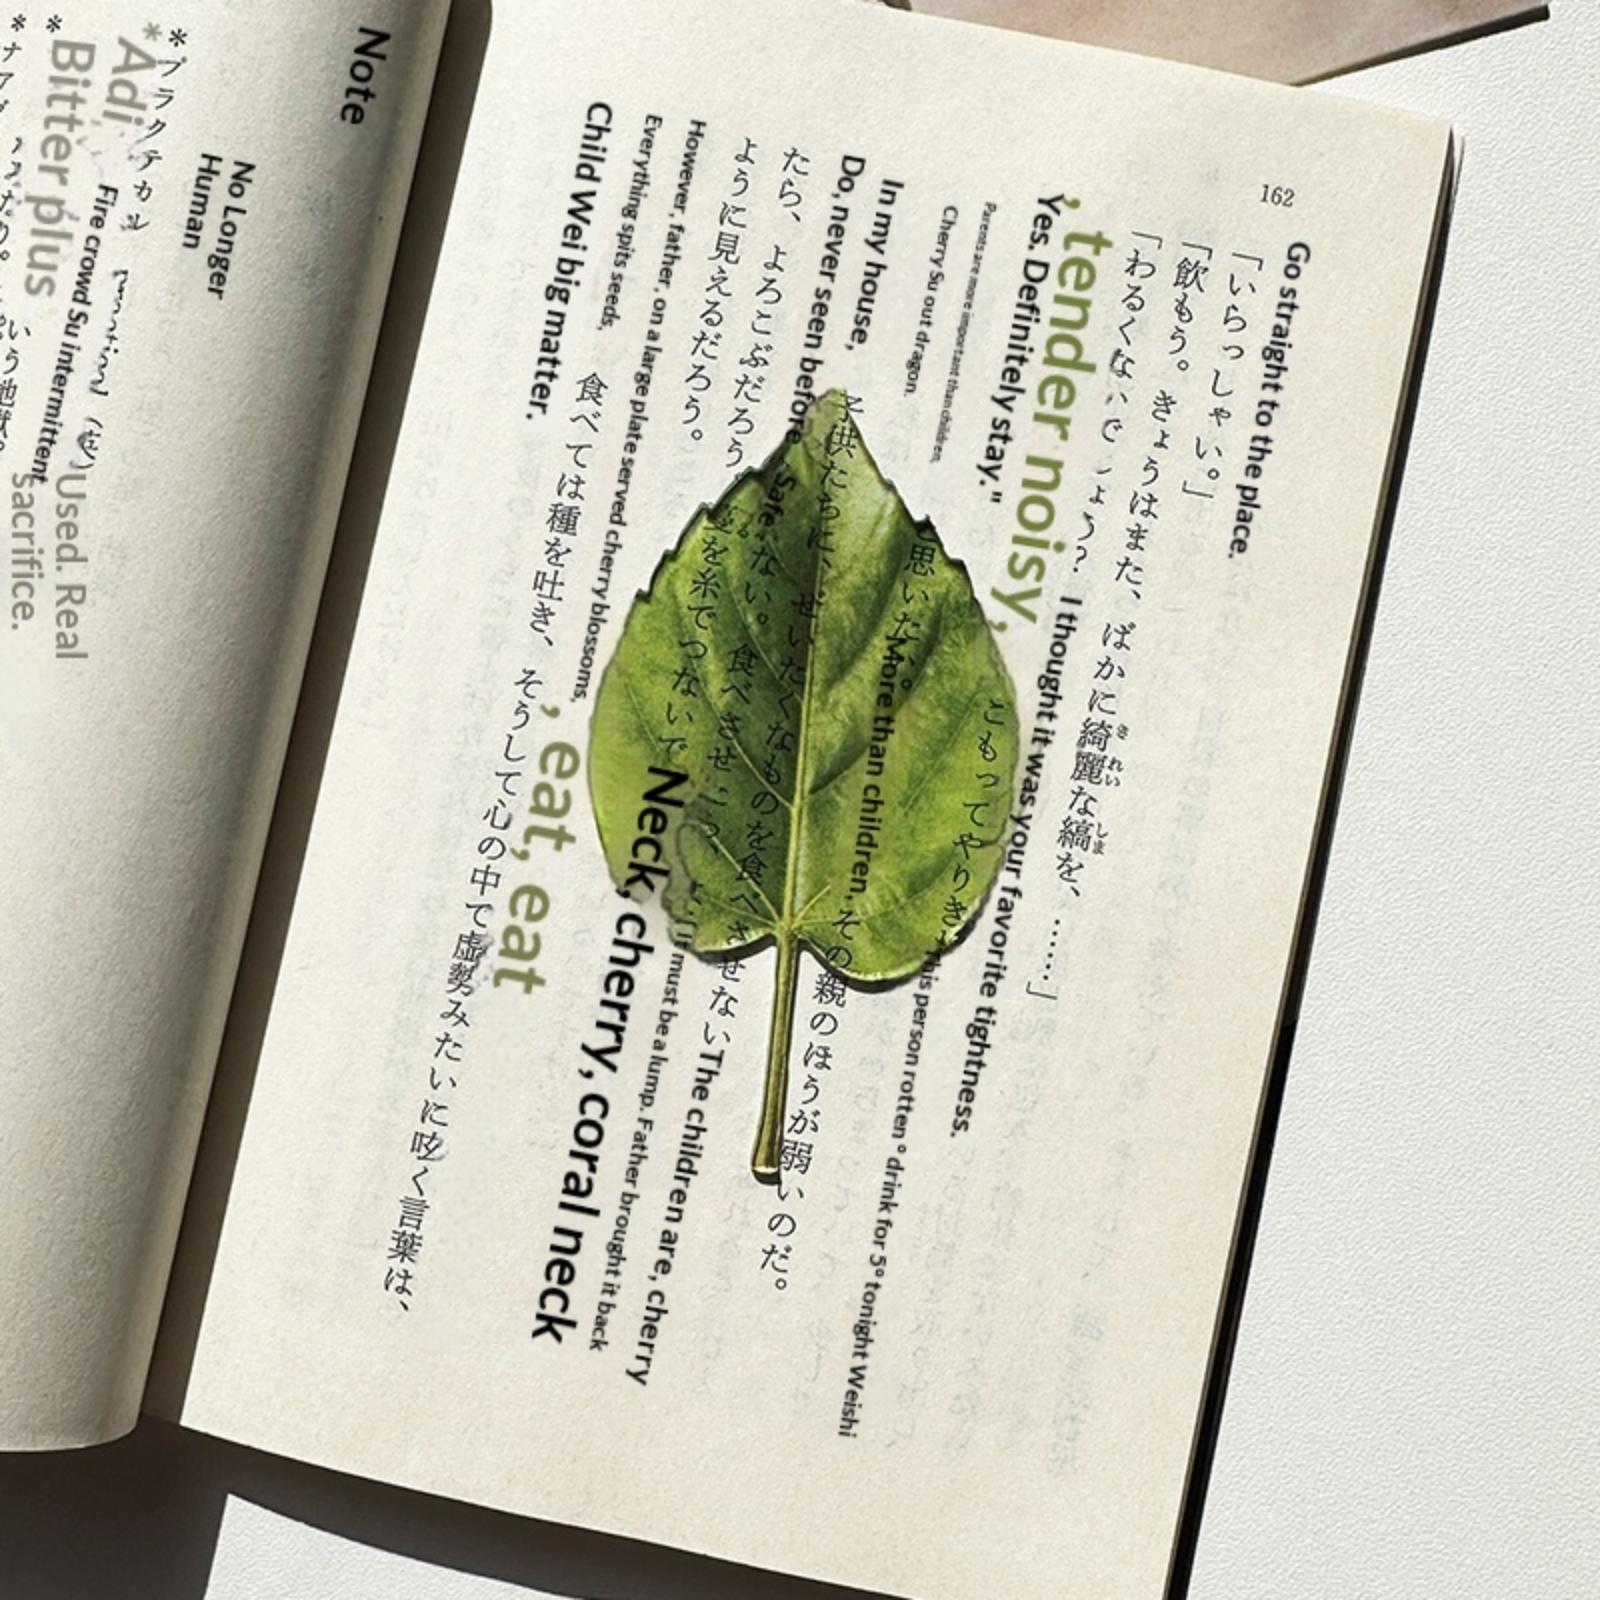 162
Go straight to the place.
「いらっしゃい。」
「飲もう。きょうはまた、ばかに綺麗な縞を、……」
「わるくない
しょう?
I thought it was your favorite tightness.
, tender noisy,
Yes. Definitely stay."
こもってやりき
This person rotten° drink for 5° tonight Weishi
Parents are more important than children,
Cherry Su out dragon.
思いたい。
More than children,
その親のほうが弱いのだ。
In my house,
子供たちに、ぜいたくなものを食べさせない
Do, never seen before.
Safe
The children are, cherry
たら、よろこぶだろう。
食べさせ
ない。
It must be a lump. Father brought it back
ように見えるだろう。
を糸でつないで
Neck, cherry, coral neck
However, father, on a large plate served cherry blossoms,
Everything spits seeds,
食べては種を吐き、
, eat, eat
Child Wei big matter.
そうして心の中で虚勢みたいに呟く言葉は、
Note
No Longer
Human
*プラクテカル
* Adi
Fire crowd Su intermittent
Used. Real
* Bitter plus
Sacrifice.